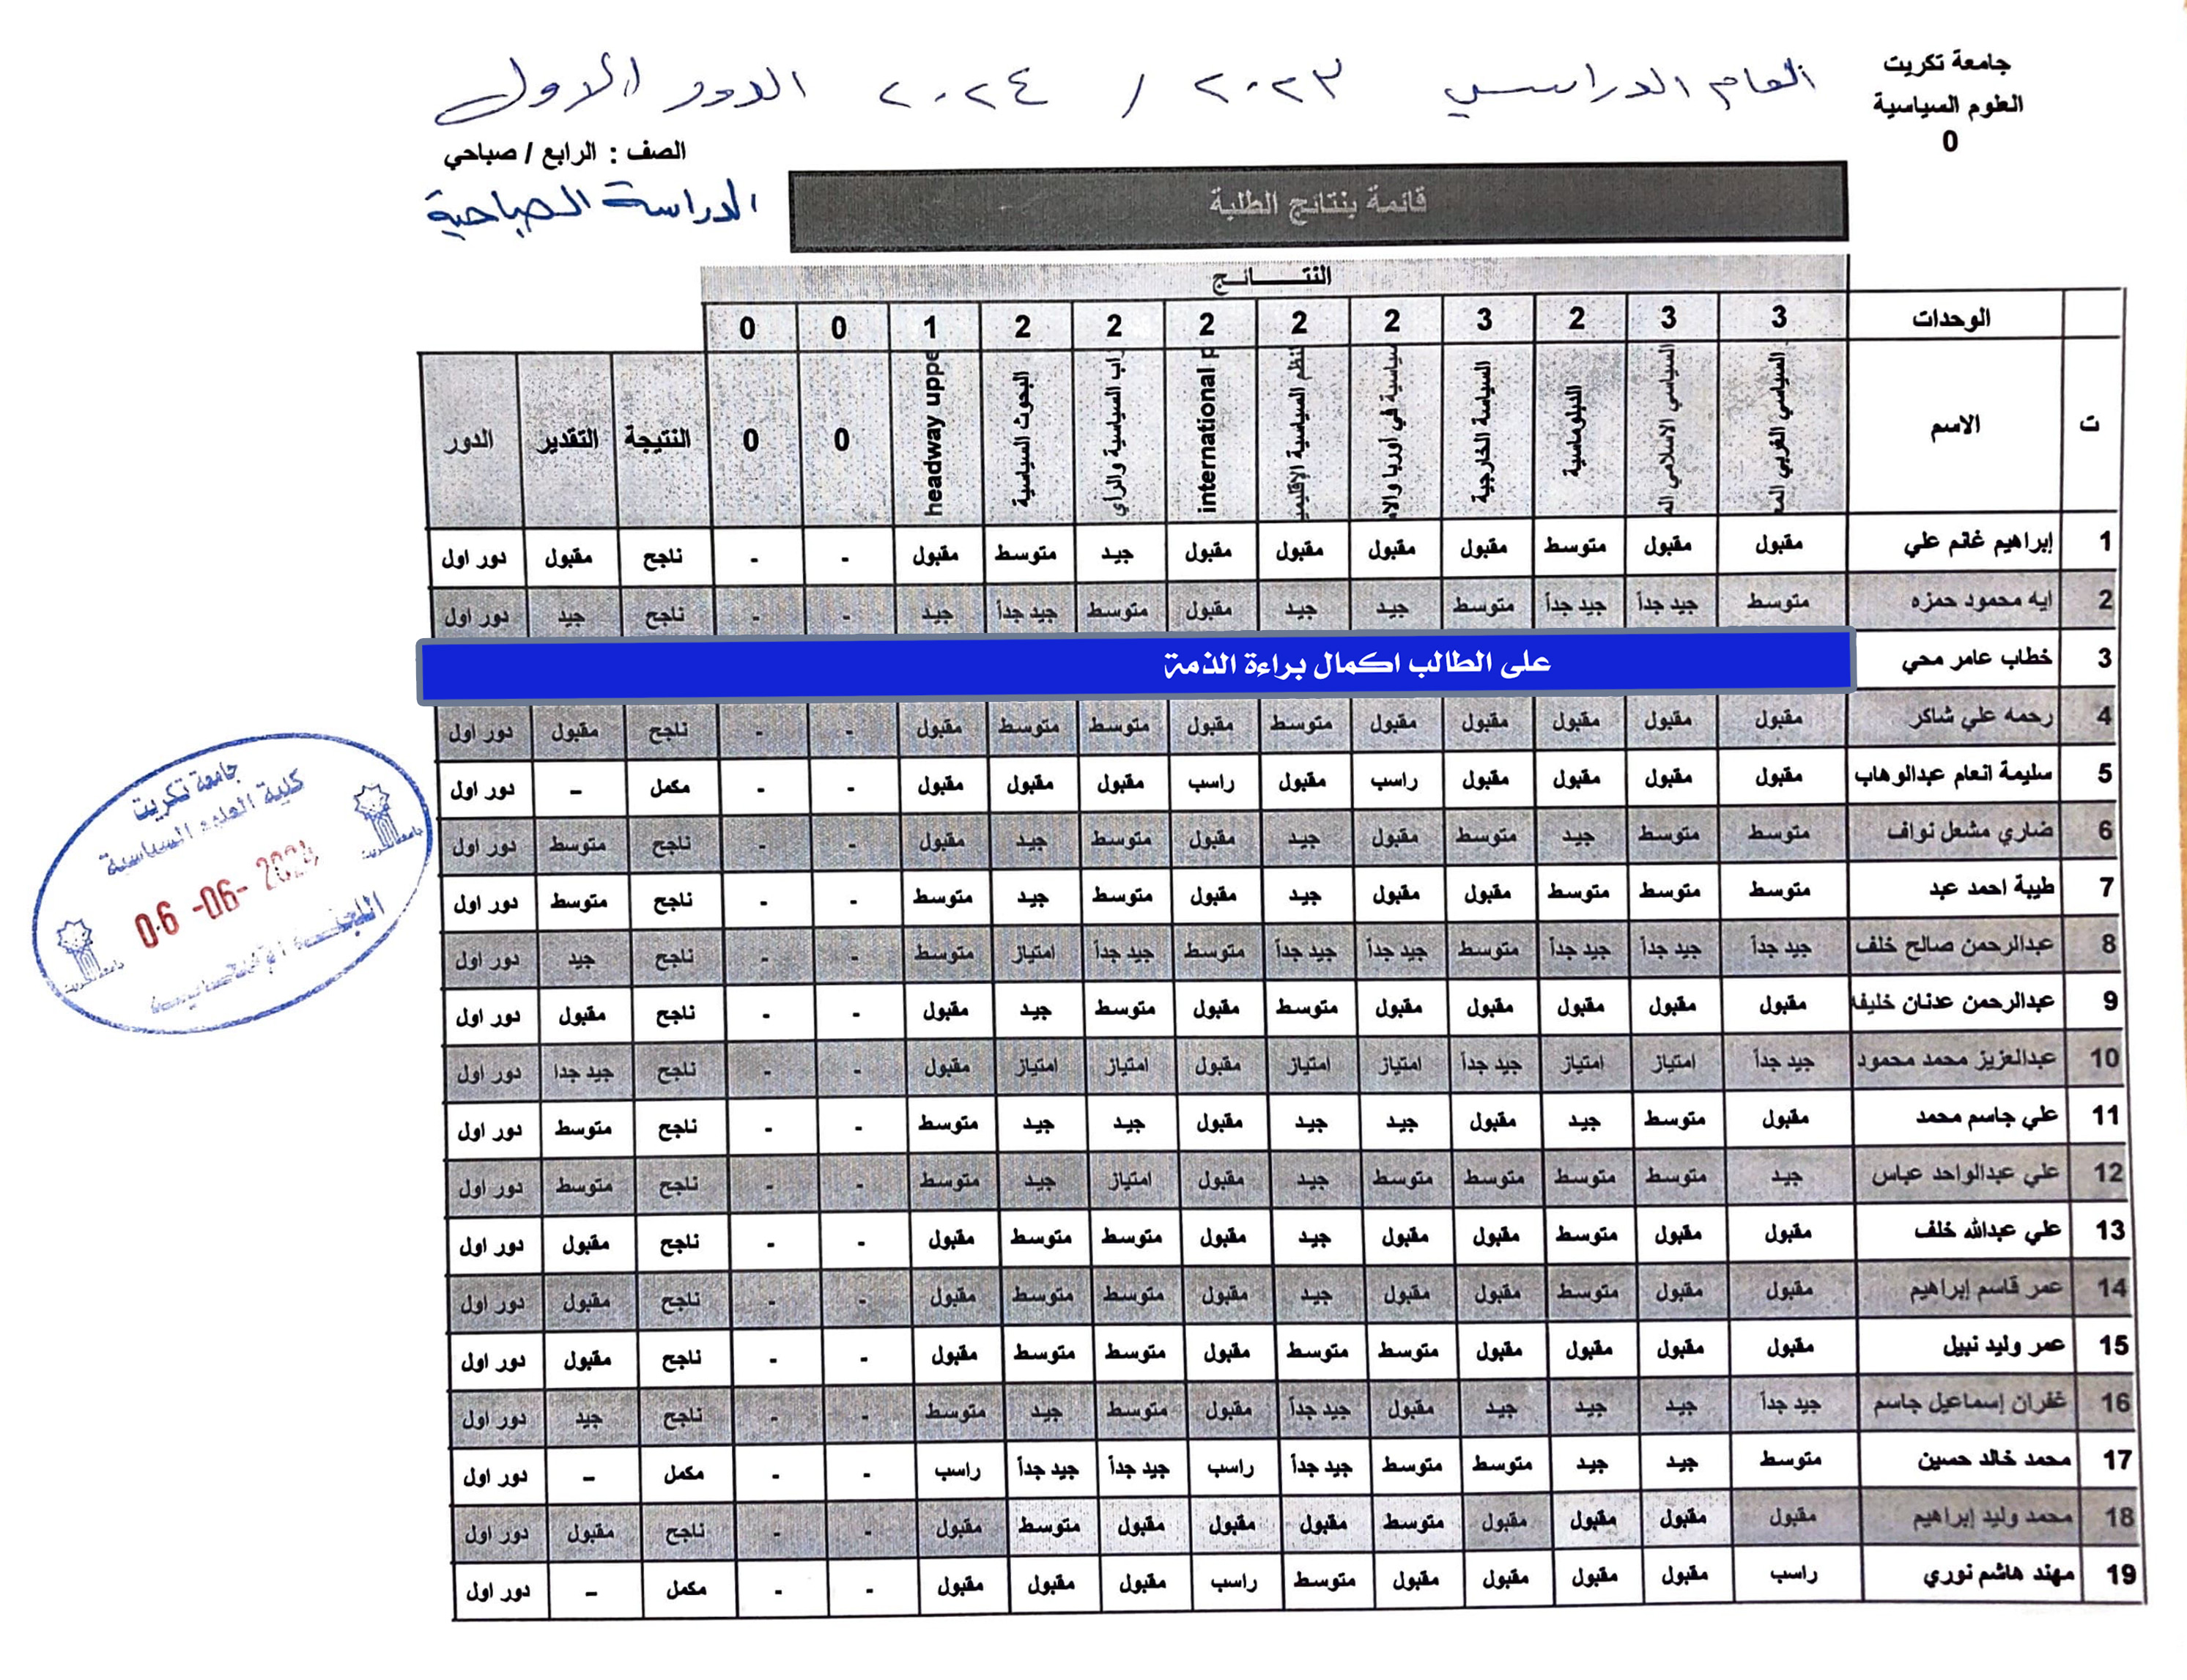 جامعة تكريت
العلوم السياسية
0
العام الدراسي ٢٠٢٣ / ٢٠٢٤ الدور الاول
الصف : الرابع / صباحي
الدراسة الصباحية
قائمة بنتائج الطلبة
النتـــــائـــج
الوحدات 3 3 2 3 2 2 2 2 2 1 0 0
ت الاسم السياسي الغربي المع السياسي الاسلامي الم الدبلوماسية السياسة الخارجية سياسية في أوربا والا لنظم السياسية الإقليمي international p زاب السياسية والرأي البحوث السياسية headway uppe 0 0 النتيجة التقدير الدور
1 إبراهيم غانم علي مقبول مقبول متوسط مقبول مقبول مقبول مقبول جيد متوسط مقبول - - ناجح مقبول دور اول
2 ايه محمود حمزه متوسط جيد جداً جيد جداً متوسط جيد جيد مقبول متوسط جيد جداً جيد - - ناجح جيد دور اول
3 خطاب عامر محي على الطالب اكمال براءة الذمة
4 رحمه علي شاكر مقبول مقبول مقبول مقبول مقبول متوسط مقبول متوسط متوسط مقبول - - ناجح مقبول دور اول
5 سليمة انعام عبدالوهاب مقبول مقبول مقبول مقبول راسب مقبول راسب مقبول مقبول مقبول - - مكمل – دور اول
6 ضاري مشعل نواف متوسط متوسط جيد متوسط مقبول جيد مقبول متوسط جيد مقبول - - ناجح متوسط دور اول
7 طيبة احمد عبد متوسط متوسط متوسط مقبول مقبول جيد مقبول متوسط جيد متوسط - - ناجح متوسط دور اول
8 عبدالرحمن صالح خلف جيد جداً جيد جداً جيد جداً متوسط جيد جداً جيد جداً متوسط جيد جداً امتياز متوسط - - ناجح جيد دور اول
9 عبدالرحمن عدنان خليفه مقبول مقبول مقبول مقبول مقبول متوسط مقبول متوسط جيد مقبول - - ناجح مقبول دور اول
10 عبدالعزيز محمد محمود جيد جداً امتياز امتياز جيد جداً امتياز امتياز مقبول امتياز امتياز مقبول - - ناجح جيد جدا دور اول
11 علي جاسم محمد مقبول متوسط جيد مقبول جيد جيد مقبول جيد جيد متوسط - - ناجح متوسط دور اول
12 علي عبدالواحد عباس جيد متوسط متوسط متوسط متوسط جيد مقبول امتياز جيد متوسط - - ناجح متوسط دور اول
13 علي عبدالله خلف مقبول مقبول متوسط مقبول مقبول جيد مقبول متوسط متوسط مقبول - - ناجح مقبول دور اول
14 عمر قاسم إبراهيم مقبول مقبول متوسط مقبول مقبول جيد مقبول متوسط متوسط مقبول - - ناجح مقبول دور اول
15 عمر وليد نبيل مقبول مقبول مقبول مقبول متوسط متوسط مقبول متوسط متوسط مقبول - - ناجح مقبول دور اول
16 غفران إسماعيل جاسم جيد جداً جيد جيد جيد مقبول جيد جداً مقبول متوسط جيد متوسط - - ناجح جيد دور اول
17 محمد خالد حسين متوسط جيد جيد متوسط متوسط جيد جداً راسب جيد جداً جيد جداً راسب - - مكمل – دور اول
18 محمد وليد إبراهيم مقبول مقبول مقبول مقبول متوسط مقبول مقبول مقبول متوسط مقبول - - ناجح مقبول دور اول
19 مهند هاشم نوري راسب مقبول مقبول مقبول مقبول متوسط راسب مقبول مقبول مقبول - - مكمل – دور اول
جامعة تكريت
كلية العلوم السياسية
06 -06- 2024
اللجنة الامتحانية